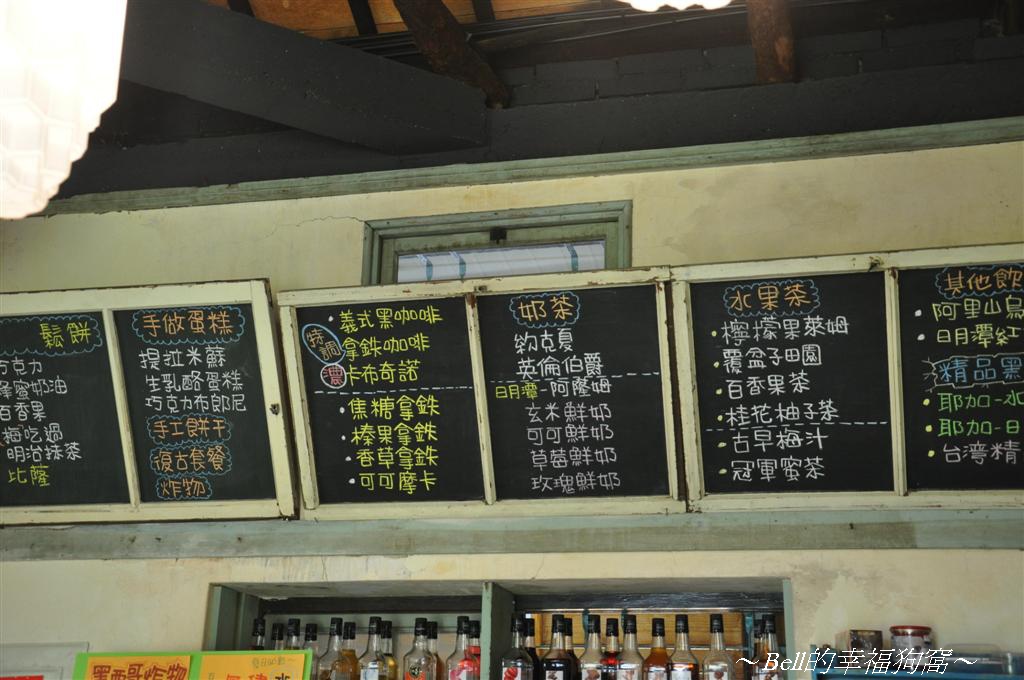 鬆餅
巧克力
蜂蜜奶油
百香果
梅吃過
明治抹茶
比薩
手做蛋糕
提拉米蘇
生乳酪蛋糕
巧克力布郎尼
手工餅干
復古套餐
炸物
特調
濃
義式黑咖啡
拿鉄咖啡
卡布奇諾
焦糖拿鉄
榛果拿鉄
香草拿鉄
可可摩卡
奶茶
約克夏
英倫伯爵
日月潭-阿薩姆
玄米鮮奶
可可鮮奶
草莓鮮奶
玫瑰鮮奶
水果茶
檸檬果萊姆
覆盆子田園
百香果茶
桂花柚子茶
古早梅汁
冠軍蜜茶
其他飲
阿里山烏
日月潭紅
精品黑
耶加-水
耶加-日
台湾精
墨西哥炸物
～Bell的幸福狗窩～